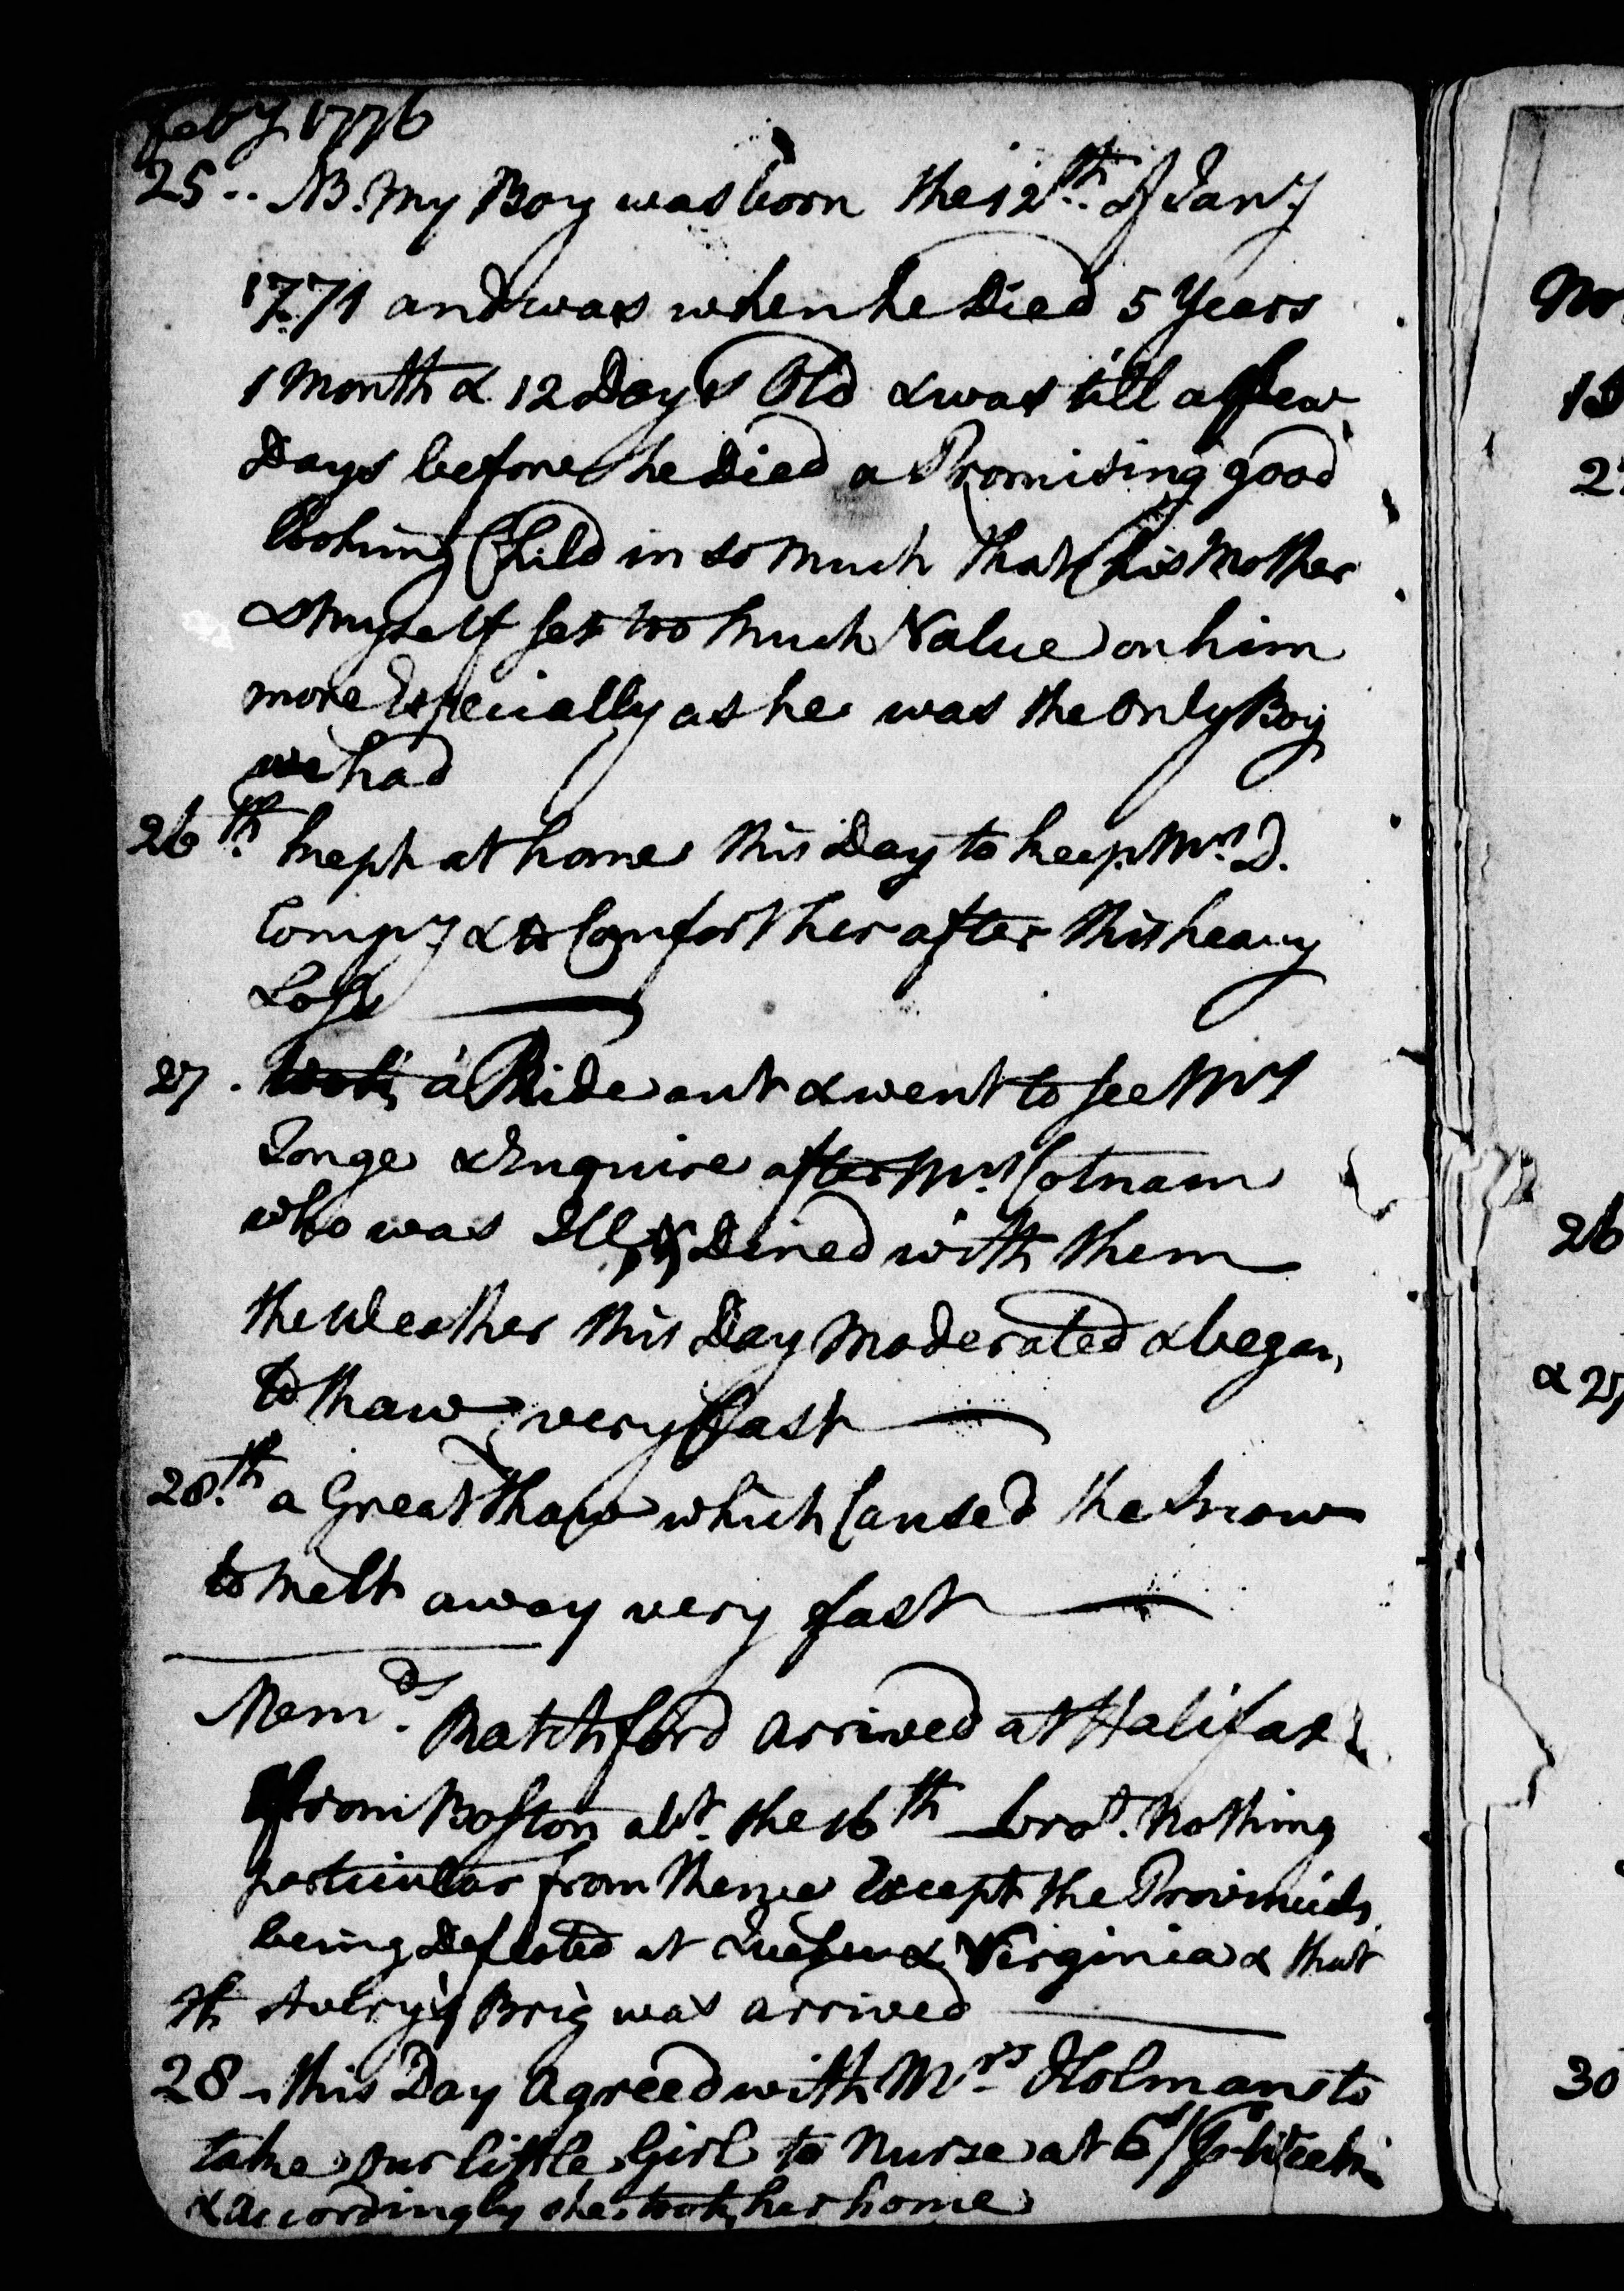 Feby 1776
25 -- NB. My Boy was born the 12th. of Jany
1771 and was when he Died 5 Years
1 Month & 12 Days Old & was till a few
Days before he Died a Promising good
looking Child in so much that his Mother
& myself set too much Value on him
more Especially as he was the Only Boy
we had
26th. kept at home this Day to keep Mrs D.
Compy & to Comfort her after this heavy
Loss
27. took a Ride out & went to see Mrs
Tonge & Enquire after Mrs Cotnam
who was Ill, & Dined with them
the Weather this Day Moderated & began
to thaw very fast
28th. a Great thaw which Caused the Snow
to melt away very fast
Memd. Ratchford arrived at Halifax
from Boston abt. the 16th brot. Nothing
particular from thence Except the Provincials
being Defeated at Quebec & Virginia & that
Avery's Brig was arrived
28 - this Day agreed with Mrs Holman to
take our little Girl to Nurse at 6/ Week
& accordingly she took her home
No
15
2
26
& 27
30